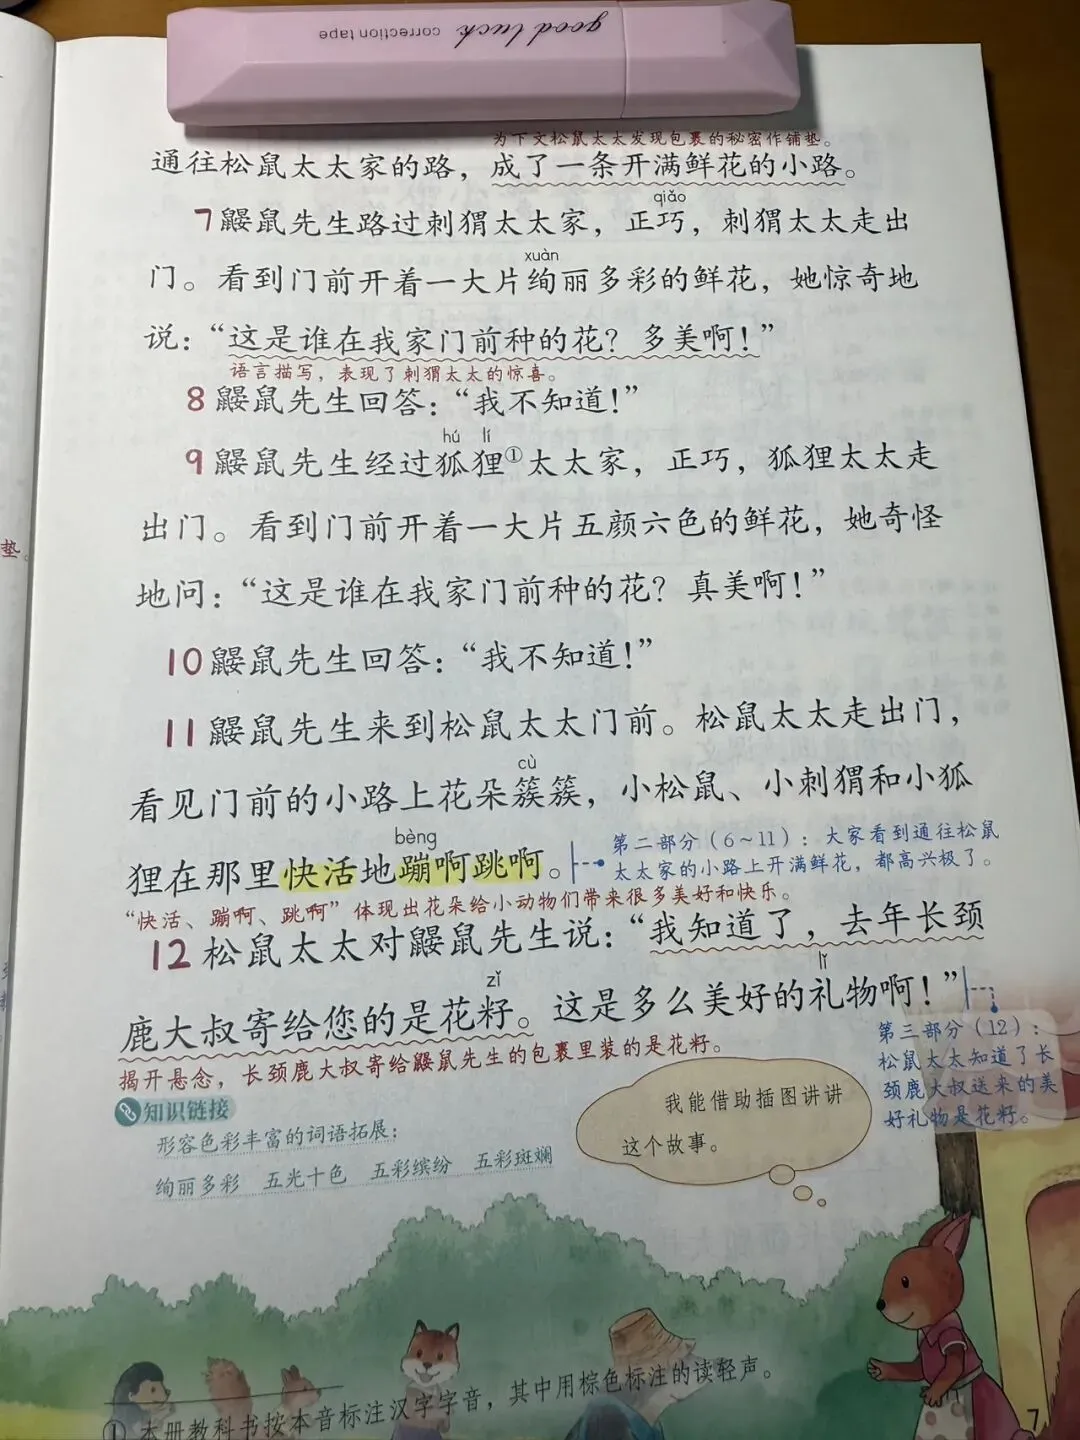 good luck correction tape
为下文松鼠太太发现包裹的秘密作铺垫。
通往松鼠太太家的路，成了一条开满鲜花的小路。
qiǎo
7 鼹鼠先生路过刺猬太太家，正巧，刺猬太太走出
xuàn
门。看到门前开着一大片绚丽多彩的鲜花，她惊奇地
说：“这是谁在我家门前种的花？多美啊！”
语言描写，表现了刺猬太太的惊喜。
8 鼹鼠先生回答：“我不知道！”
hú lí
9 鼹鼠先生经过狐狸①太太家，正巧，狐狸太太走
出门。看到门前开着一大片五颜六色的鲜花，她奇怪
垫。
地问：“这是谁在我家门前种的花？真美啊！”
10 鼹鼠先生回答：“我不知道！”
11 鼹鼠先生来到松鼠太太门前。松鼠太太走出门，
cù
看见门前的小路上花朵簇簇，小松鼠、小刺猬和小狐
bèng
狸在那里快活地蹦啊跳啊。
第二部分（6～11）：大家看到通往松鼠
太太家的小路上开满鲜花，都高兴极了。
“快活、蹦啊、跳啊”体现出花朵给小动物们带来很多美好和快乐。
12 松鼠太太对鼹鼠先生说：“我知道了，去年长颈
zǐ lǐ
鹿大叔寄给您的是花籽。这是多么美好的礼物啊！”
揭开悬念，长颈鹿大叔寄给鼹鼠先生的包裹里装的是花籽。
第三部分（12）：
松鼠太太知道了长
颈鹿大叔送来的美
好礼物是花籽。
知识链接
形容色彩丰富的词语拓展：
绚丽多彩 五光十色 五彩缤纷 五彩斑斓
我能借助插图讲讲
这个故事。
① 本册教科书按本音标注汉字字音，其中用棕色标注的读轻声。
7